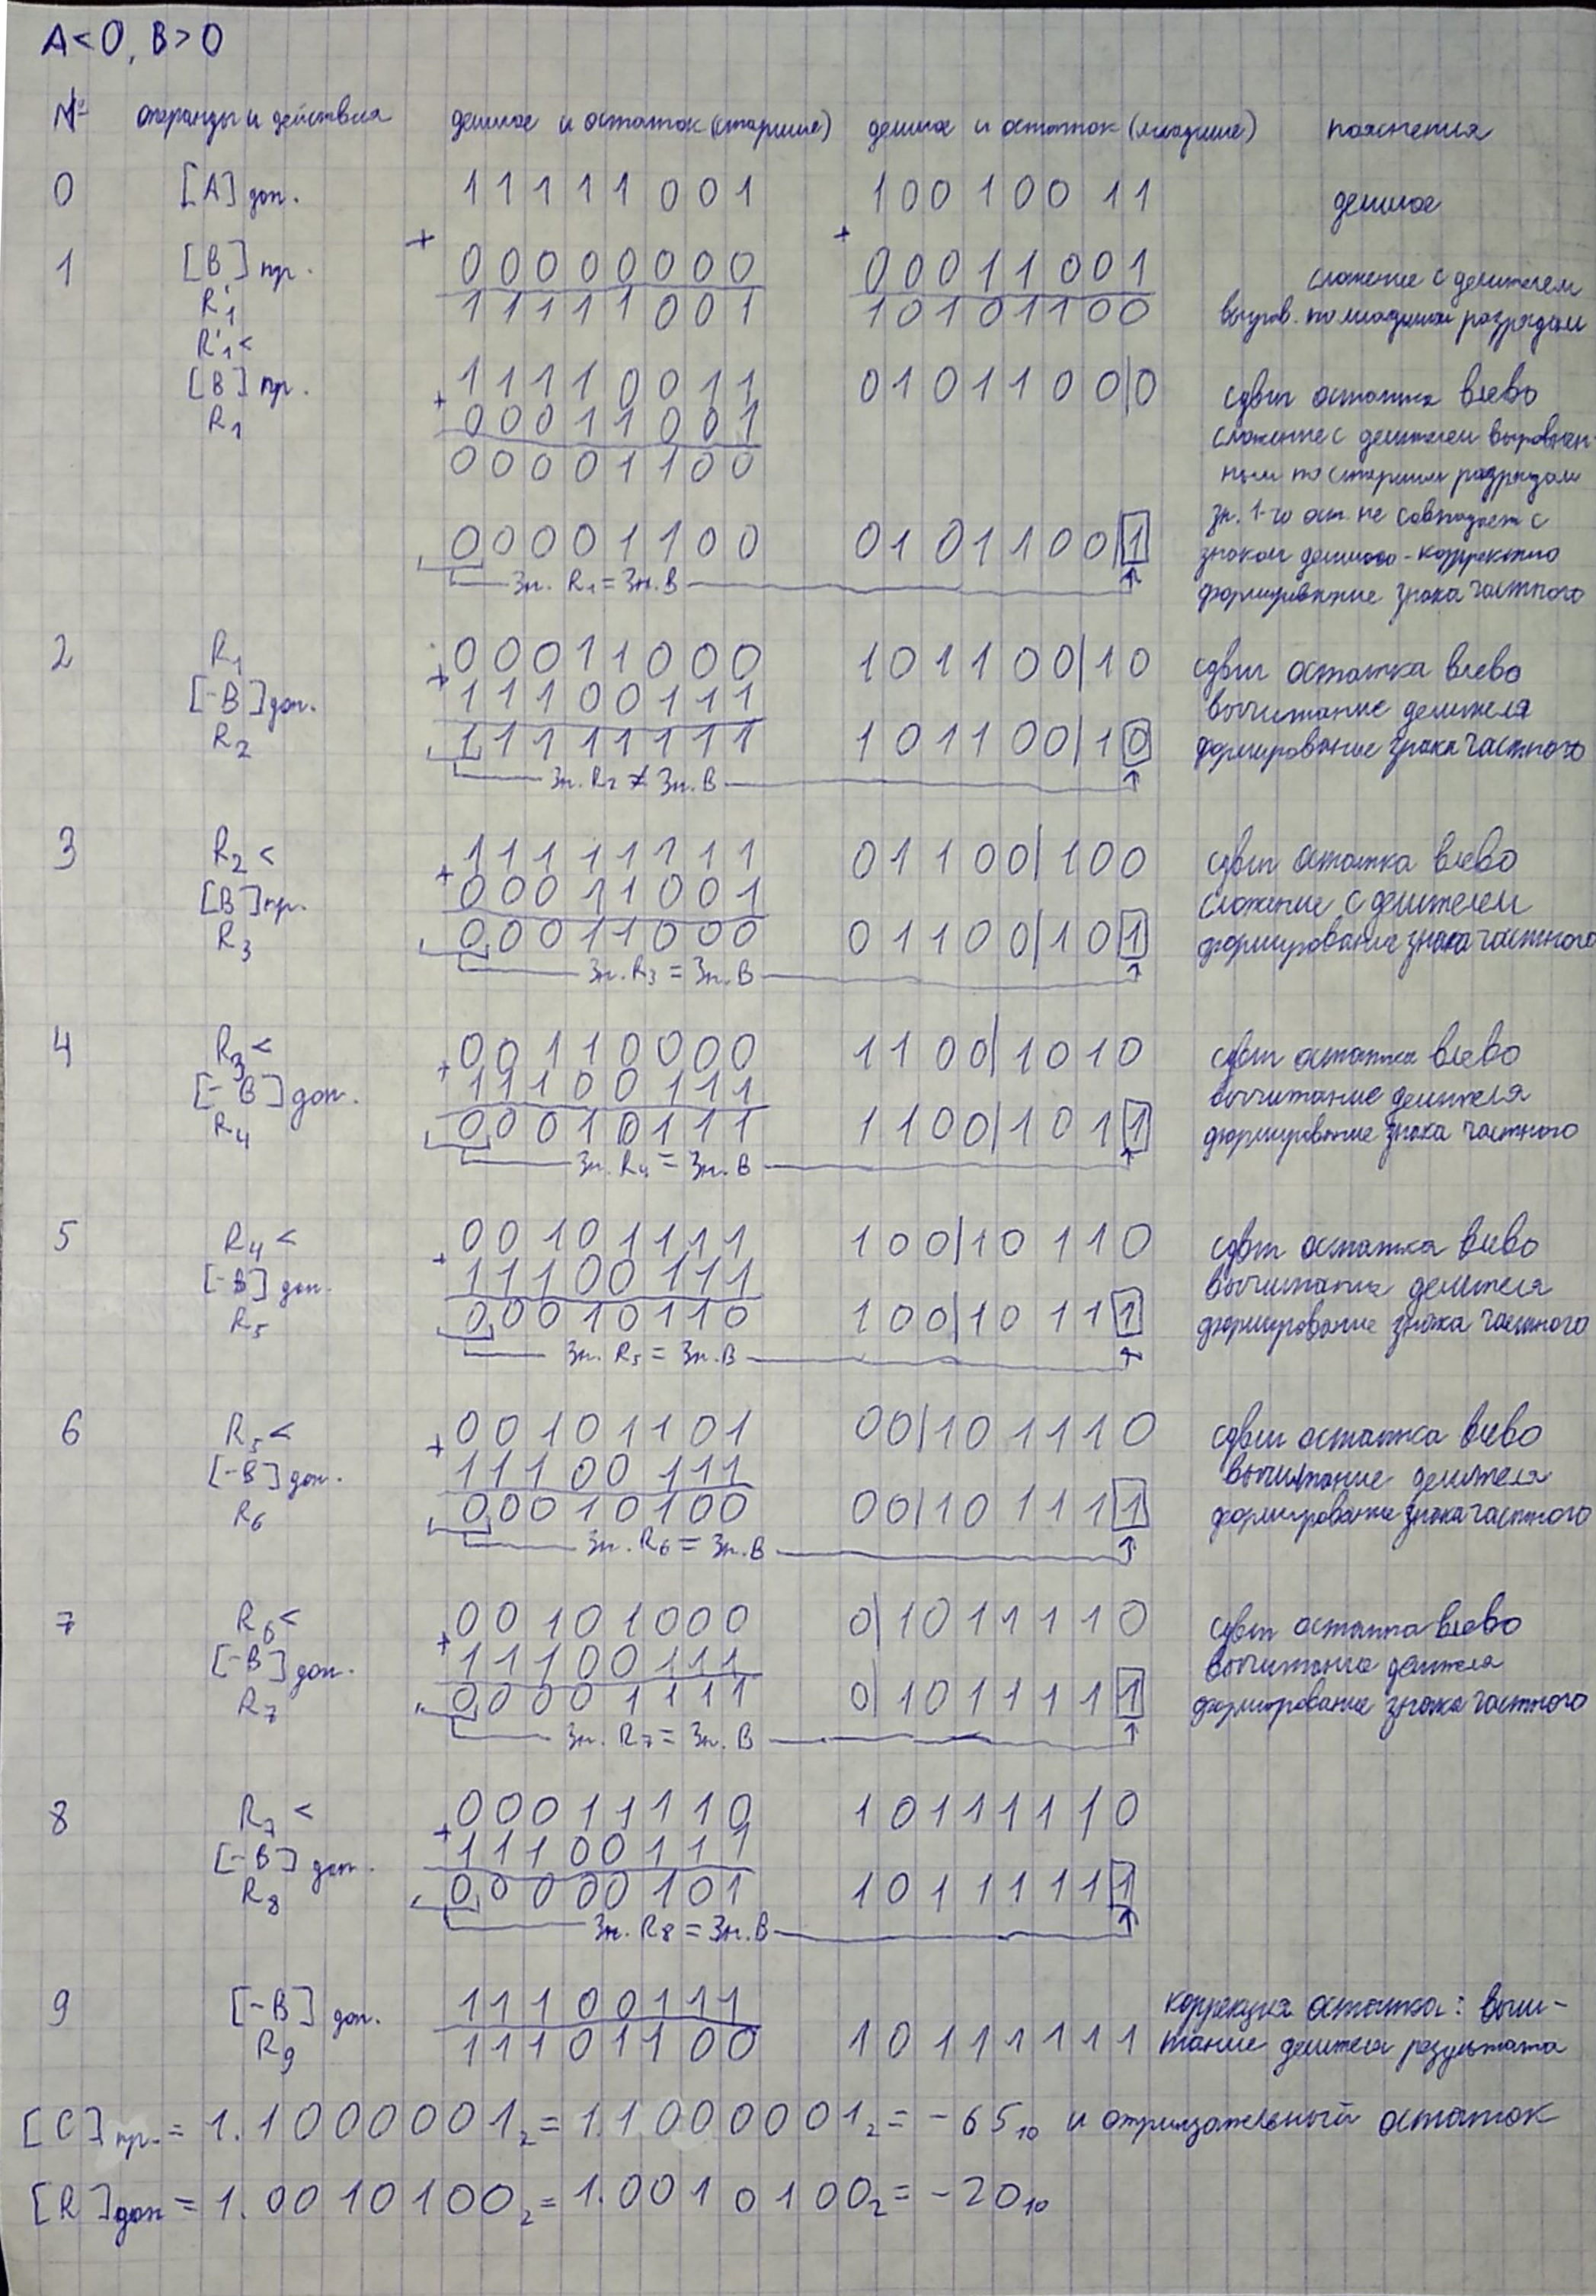 A<0, B>0
№ операнды и действия делимое и остаток (старшие) делимое и остаток (младшие) пояснения
0 [A]доп. 11111001 10010011 делимое
1 [B]пр. + 00000000 + 00011001 сложение с делителем
R'1 11111001 10101100 выров. по младшим разрядам
R'1 <
[B]пр. 11110011 0101100|0 сдвиг остатка влево
R1 + 00011001 сложение с делителем выровнен-
00001100 ным по старшим разрядам
зн. 1-го ост. не совпадает с
00001100 0101100|1 знаком делимого - корректно
Зн. R1 = Зн. B формирование знака частного
2 R1 00011000 101100|10 сдвиг остатка влево
[-B]доп. + 11100111 вычитание делителя
R2 11111111 101100|10 формирование знака частного
Зн. R2 ≠ Зн. B
3 R2 < 11111111 01100|100 сдвиг остатка влево
[B]пр. + 00011001 сложение с делителем
R3 00011000 01100|101 формирование знака частного
Зн. R3 = Зн. B
4 R3 < 00110000 1100|1010 сдвиг остатка влево
[-B]доп. + 11100111 вычитание делителя
R4 00010111 1100|1011 формирование знака частного
Зн. R4 = Зн. B
5 R4 < 00101111 100|10110 сдвиг остатка влево
[-B]доп. + 11100111 вычитание делителя
R5 00010110 100|10111 формирование знака частного
Зн. R5 = Зн. B
6 R5 < 00101101 00|101110 сдвиг остатка влево
[-B]доп. + 11100111 вычитание делителя
R6 00010100 00|101111 формирование знака частного
Зн. R6 = Зн. B
7 R6 < 00101000 0|1011110 сдвиг остатка влево
[-B]доп. + 11100111 вычитание делителя
R7 00001111 0|1011111 формирование знака частного
Зн. R7 = Зн. B
8 R7 < 00011110 10111110
[-B]доп. + 11100111
R8 00000101 10111111
Зн. R8 = Зн. B
9 [-B]доп. 11100111 коррекция остатка: вычи-
R9 11101100 10111111 тание делителя результата
[C]пр. = 1.1000001₂ = 1.1000001₂ = -65₁₀ и отрицательный остаток
[R]доп = 1.0010100₂ = 1.0010100₂ = -20₁₀